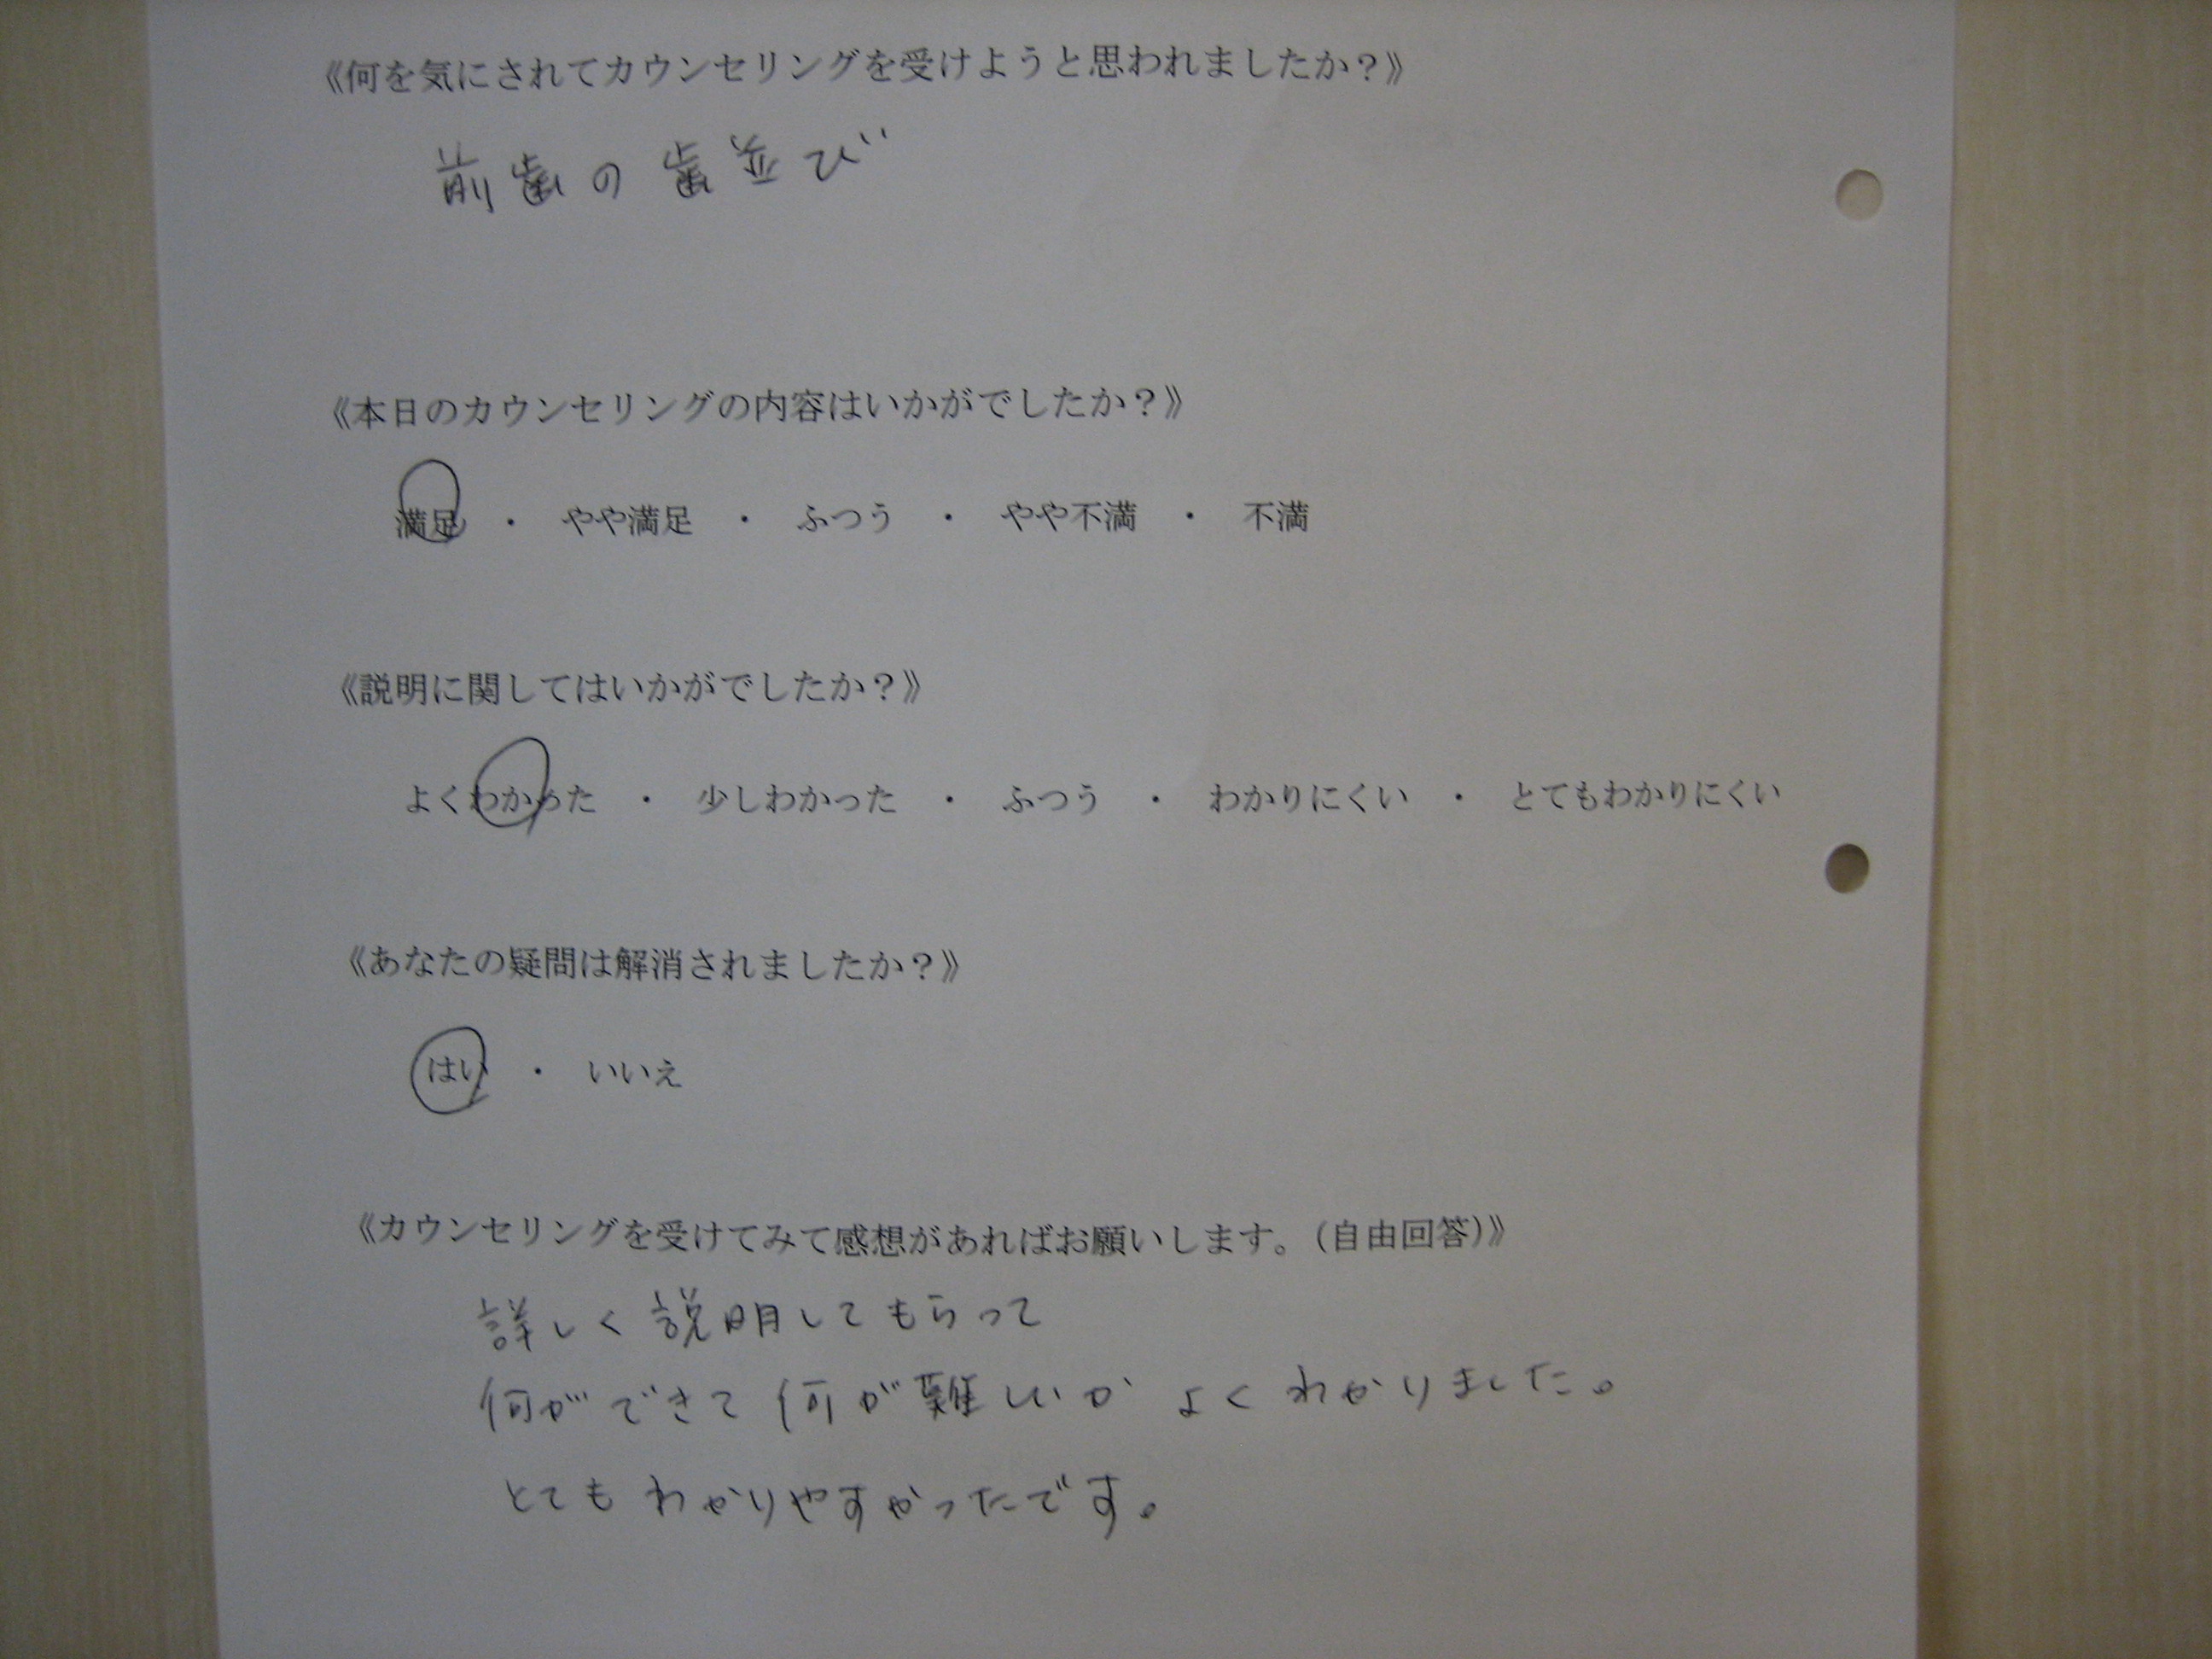 《何を気にされてカウンセリングを受けようと思われましたか？》
前歯の歯並び
《本日のカウンセリングの内容はいかがでしたか？》
満足 ・ やや満足 ・ ふつう ・ やや不満 ・ 不満
《説明に関してはいかがでしたか？》
よくわかった ・ 少しわかった ・ ふつう ・ わかりにくい ・ とてもわかりにくい
《あなたの疑問は解消されましたか？》
はい ・ いいえ
《カウンセリングを受けてみて感想があればお願いします。(自由回答)》
詳しく説明してもらって
何ができて何が難しいか よくわかりました。
とてもわかりやすかったです。